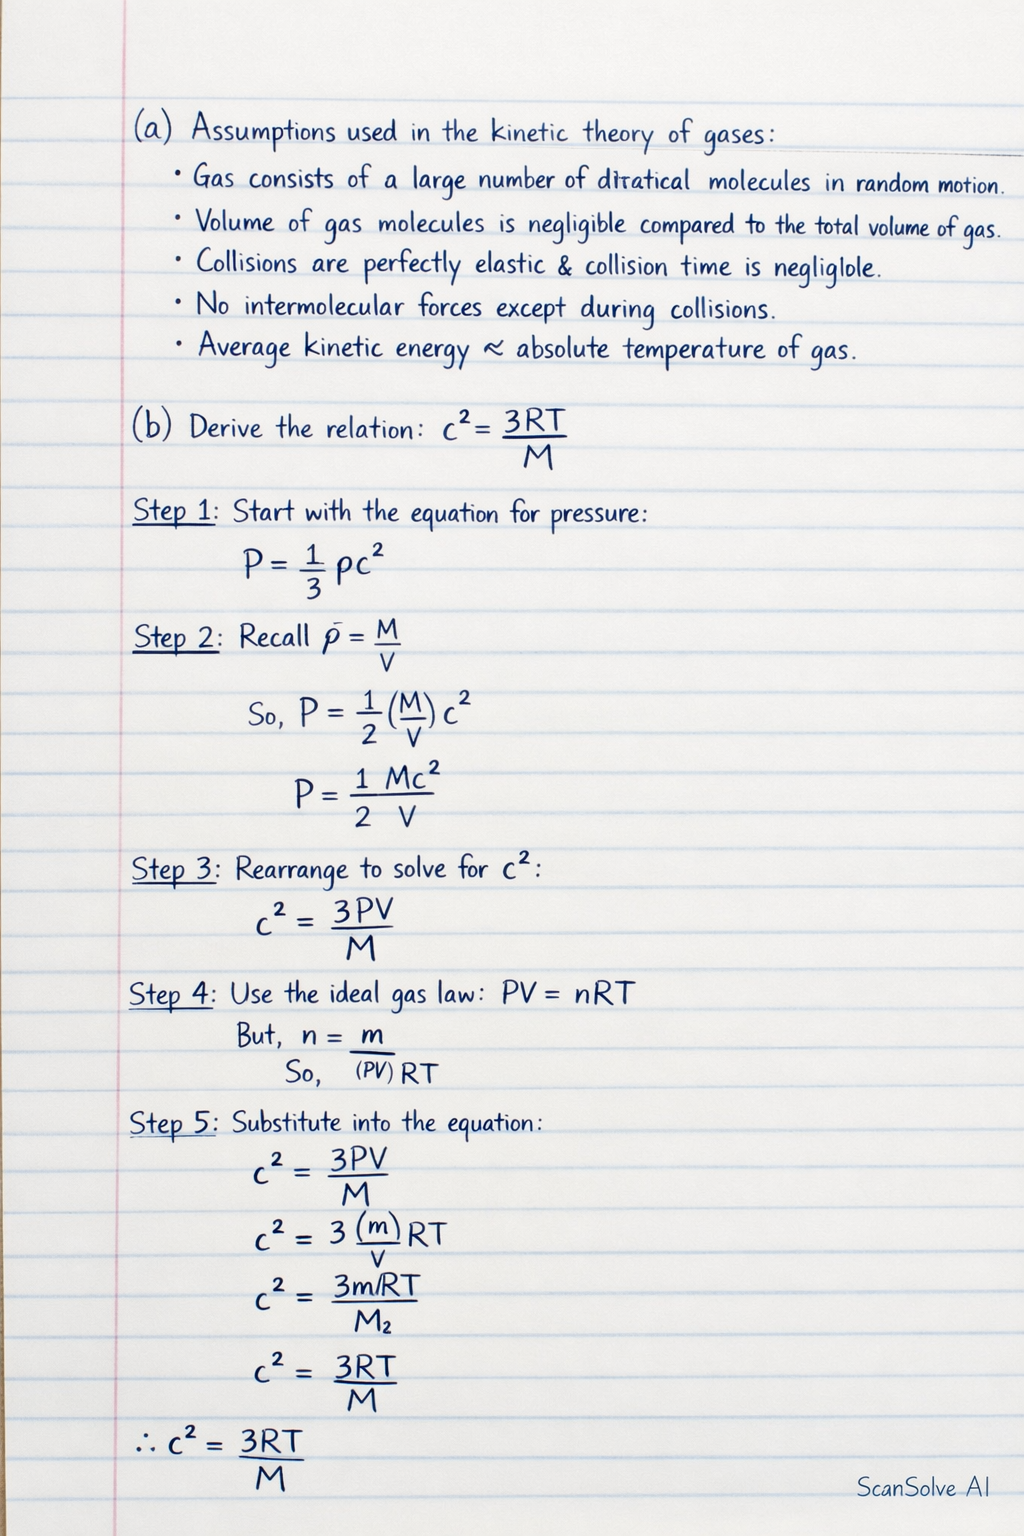 (a) Assumptions used in the kinetic theory of gases:
• Gas consists of a large number of molecules in random motion.
• Volume of gas molecules is negligible compared to the total volume of gas.
• Collisions are perfectly elastic & collision time is negliglole.
• No intermolecular forces except during collisions.
• Average kinetic energy ≈ absolute temperature of gas.
(b) Derive the relation: c² = 3RT/M
Step 1: Start with the equation for pressure:
P = 1/3 ρc²
Step 2: Recall ρ̄ = M/V
So, P = 1/2 (M/V) c²
P = 1 Mc²/2 V
Step 3: Rearrange to solve for c²:
c² = 3PV/M
Step 4: Use the ideal gas law: PV = nRT
But, n = m
So, (PV) RT
Step 5: Substitute into the equation:
c² = 3PV/M
c² = 3 (m)/V RT
c² = 3m/RT/M₂
c² = 3RT/M
∴ c² = 3RT/M
ScanSolve AI